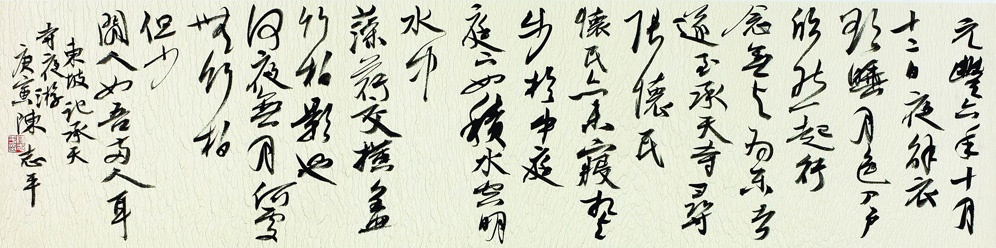 元豐六年十月
十二日夜解衣
欲睡月色入户
欣然起行
念無与为樂者
遂至承天寺尋
張懷民
懷民亦未寢相与
步於中庭
庭下如積水空明
水中
藻荇交横盖
竹柏影也
何夜無月何處
無竹柏
但少
閑人如吾兩人耳
東坡记承天
寺夜游
庚寅陳志平